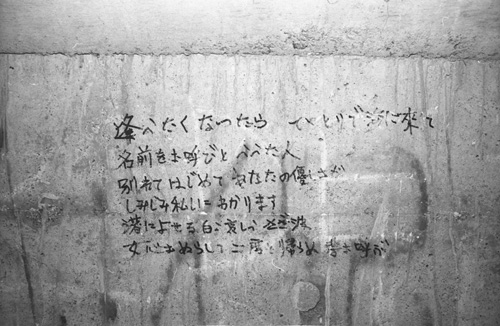 逢いたくなったら ひとりで 来て
名前を呼びと 人
別れてはじめて あなたの優しさが
しみじみ私にわかります
渚によせる白い哀しい 波
女心をぬらして 帰らぬ を呼ぶ